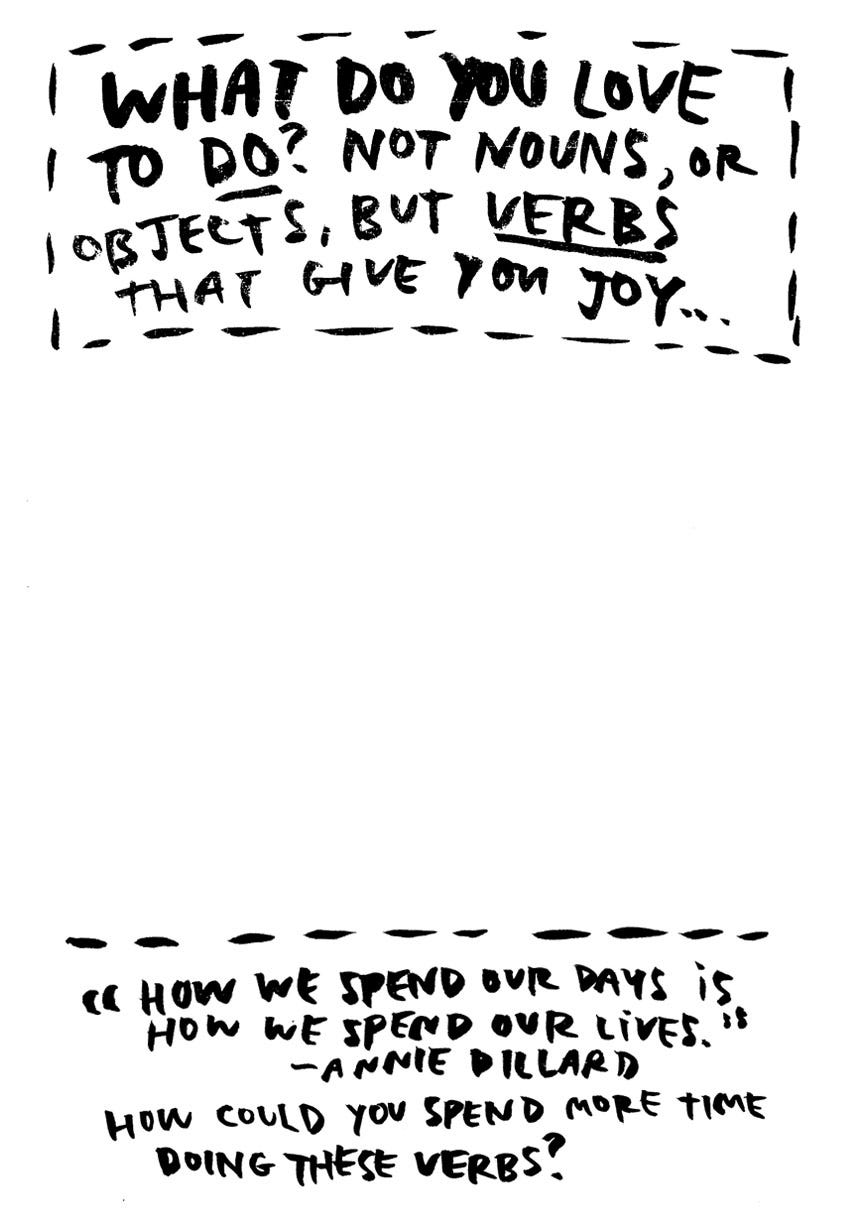 WHAT DO YOU LOVE
TO DO? NOT NOUNS, OR
OBJECTS, BUT VERBS
THAT GIVE YOU JOY...
“HOW WE SPEND OUR DAYS is
HOW WE SPEND OUR LiVES.”
-ANNIE DILLARD
HOW COULD YOU SPEND MORE TIME
DOING THESE VERBS?